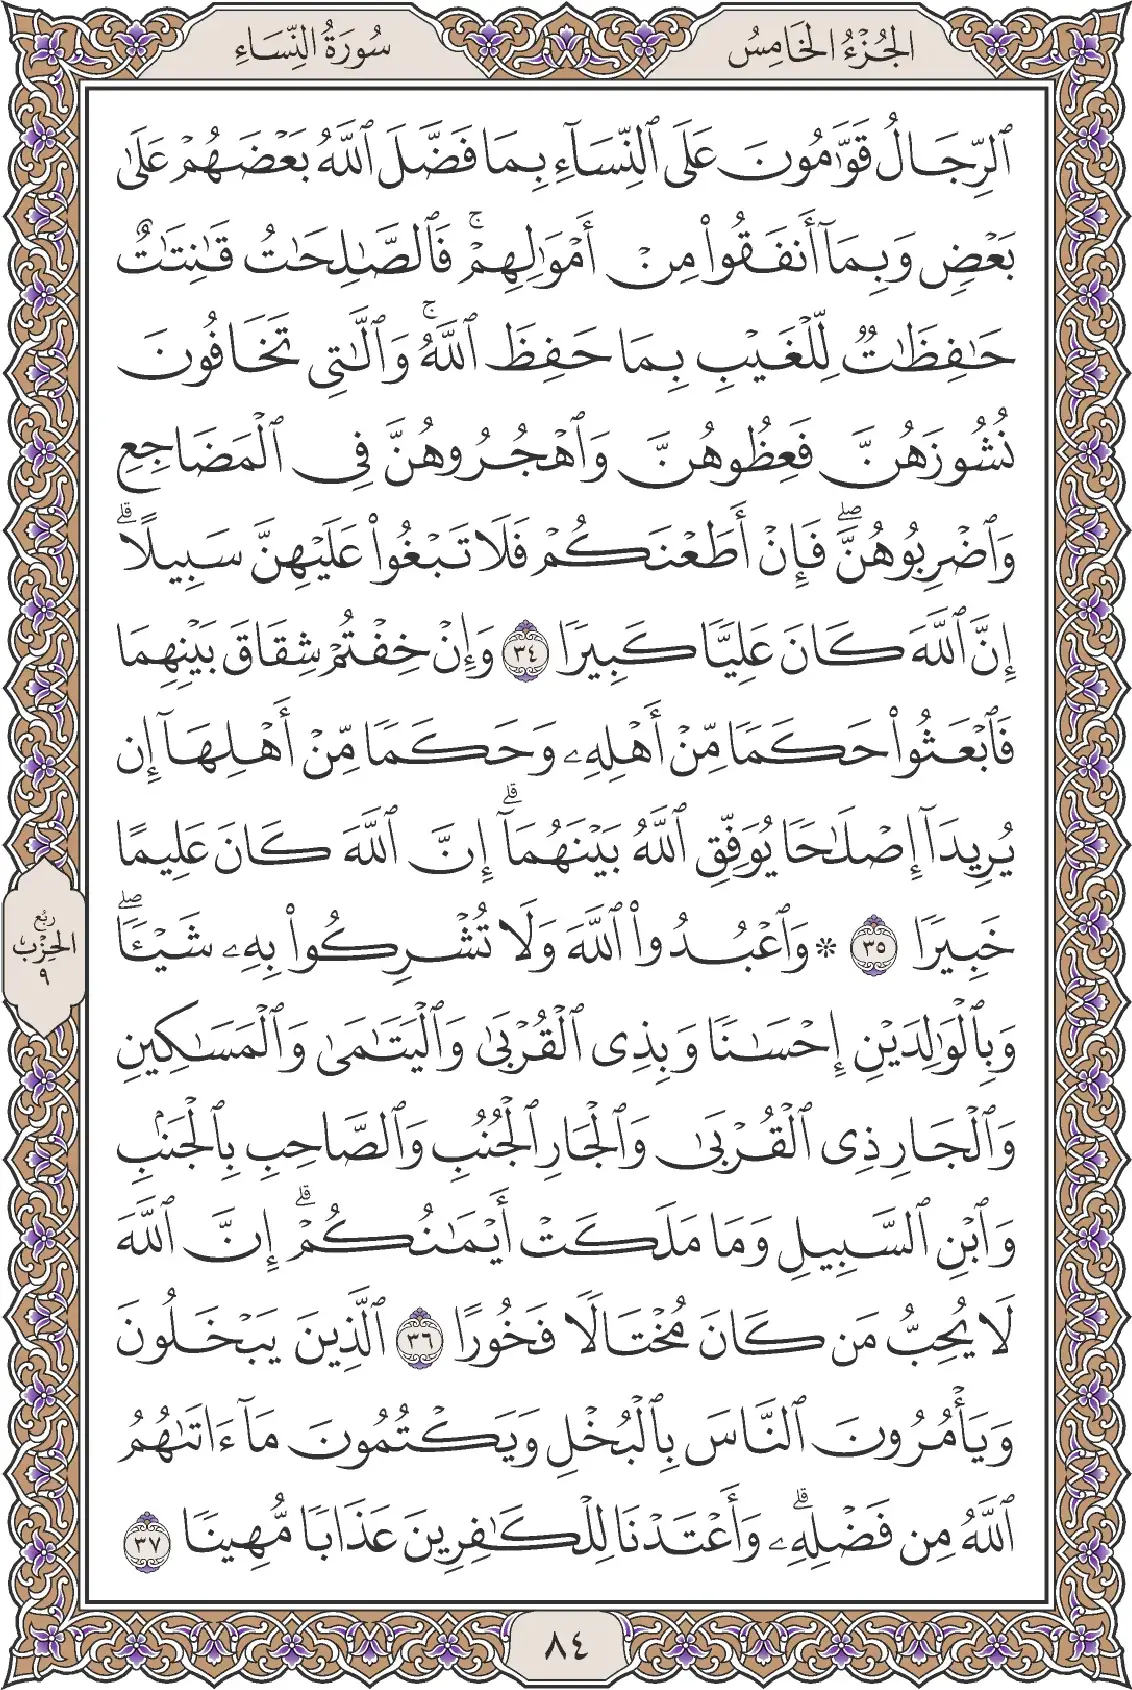 الجُزْءُ الخَامِسُ
سُورَةُ النِّسَاءِ
ٱلرِّجَالُ قَوَّٰمُونَ عَلَى ٱلنِّسَآءِ بِمَا فَضَّلَ ٱللَّهُ بَعْضَهُمْ عَلَىٰ
بَعْضٍ وَبِمَآ أَنفَقُوا۟ مِنْ أَمْوَٰلِهِمْ ۚ فَٱلصَّٰلِحَٰتُ قَٰنِتَٰتٌ
حَٰفِظَٰتٌ لِّلْغَيْبِ بِمَا حَفِظَ ٱللَّهُ ۚ وَٱلَّٰتِى تَخَافُونَ
نُشُوزَهُنَّ فَعِظُوهُنَّ وَٱهْجُرُوهُنَّ فِى ٱلْمَضَاجِعِ
وَٱضْرِبُوهُنَّ ۖ فَإِنْ أَطَعْنَكُمْ فَلَا تَبْغُوا۟ عَلَيْهِنَّ سَبِيلًا ۗ
إِنَّ ٱللَّهَ كَانَ عَلِيًّا كَبِيرًا ٣٤ وَإِنْ خِفْتُمْ شِقَاقَ بَيْنِهِمَا
فَٱبْعَثُوا۟ حَكَمًا مِّنْ أَهْلِهِۦ وَحَكَمًا مِّنْ أَهْلِهَآ إِن
يُرِيدَآ إِصْلَٰحًا يُوَفِّقِ ٱللَّهُ بَيْنَهُمَآ ۗ إِنَّ ٱللَّهَ كَانَ عَلِيمًا
خَبِيرًا ٣٥ * وَٱعْبُدُوا۟ ٱللَّهَ وَلَا تُشْرِكُوا۟ بِهِۦ شَيْـًٔا ۖ
وَبِٱلْوَٰلِدَيْنِ إِحْسَٰنًا وَبِذِى ٱلْقُرْبَىٰ وَٱلْيَتَٰمَىٰ وَٱلْمَسَٰكِينِ
وَٱلْجَارِ ذِى ٱلْقُرْبَىٰ وَٱلْجَارِ ٱلْجُنُبِ وَٱلصَّاحِبِ بِٱلْجَنۢبِ
وَٱبْنِ ٱلسَّبِيلِ وَمَا مَلَكَتْ أَيْمَٰنُكُمْ ۗ إِنَّ ٱللَّهَ
لَا يُحِبُّ مَن كَانَ مُخْتَالًا فَخُورًا ٣٦ ٱلَّذِينَ يَبْخَلُونَ
وَيَأْمُرُونَ ٱلنَّاسَ بِٱلْبُخْلِ وَيَكْتُمُونَ مَآ ءَاتَىٰهُمُ
ٱللَّهُ مِن فَضْلِهِۦ ۗ وَأَعْتَدْنَا لِلْكَٰفِرِينَ عَذَابًا مُّهِينًا ٣٧
رُبُع
الحِزْب
٩
٨٤